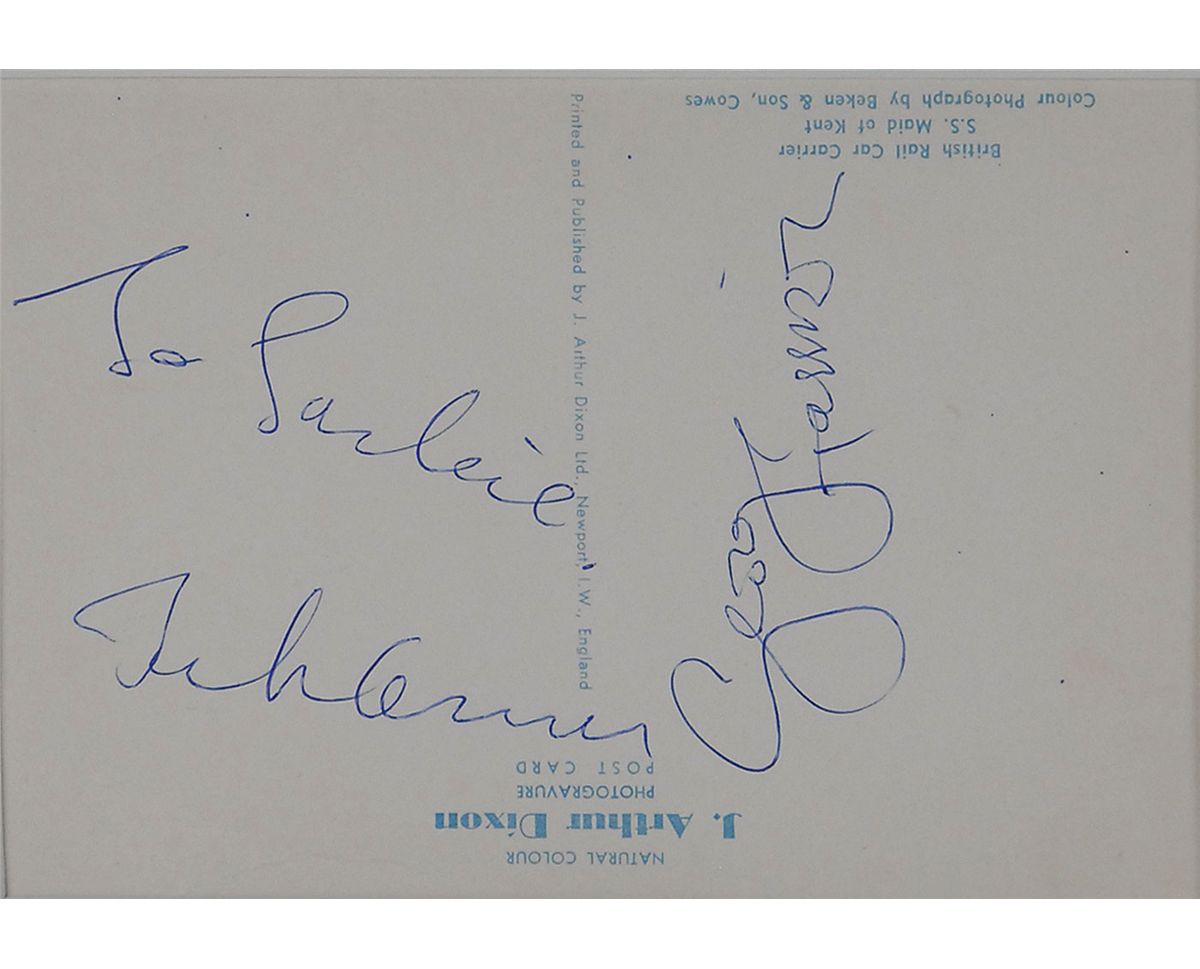 Colour Photograph by Beken & Son, Cowes
S.S. Maid of Kent
British Rail Car Carrier
Printed and Published by J. Arthur Dixon Ltd., Newport, I.W., England
To
George Harrison
POST CARD
PHOTOGRAVURE
J. Arthur Dixon
NATURAL COLOUR